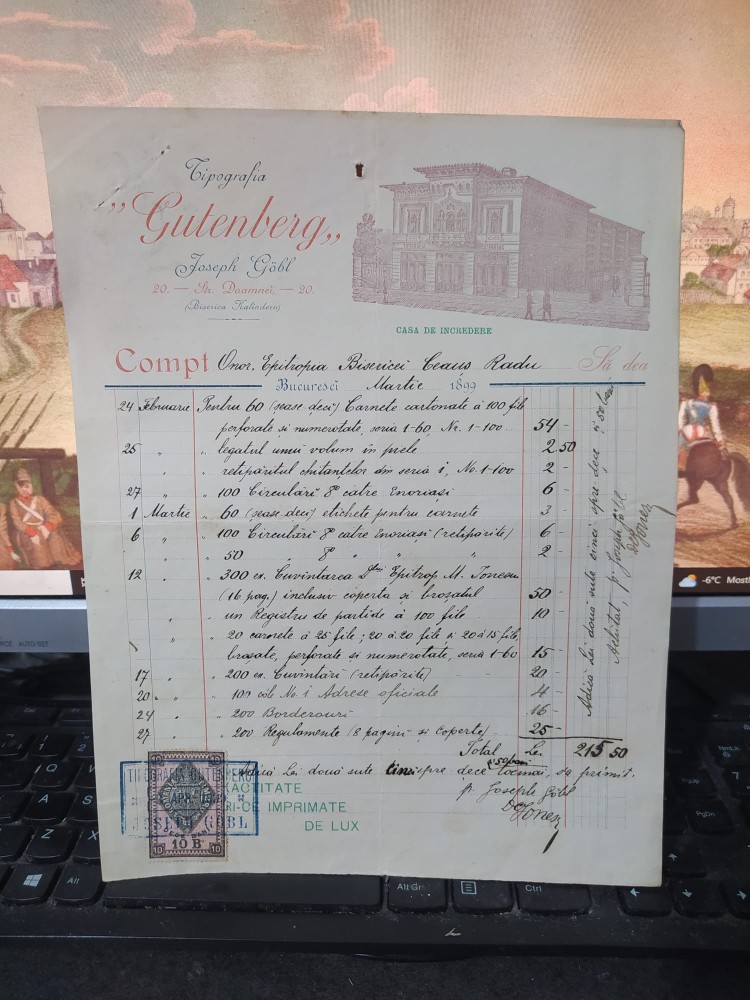 Tipografia
"Gutenberg"
Joseph Göbl
20. — Str. Doamnei. — 20.
(Biserica Kalinderu)
CASA DE INCREDERE
Compt Onor. Epitropia Bisericei Ceaus Radu Să dea
Bucuresci Martie 1899
24 Februarie Pentru 60 (șease-deci) Carnete cartonate à 100 file
perforate si numerotate, seria 1-60, Nr. 1-100. 54 -
25 " " legatul unui volum in piele 2 50
" " retipăritul chitanțelor din seria i, No. 1-100 2 -
27 " " 100 Circulări 8º cătrе Enoriași 6 -
1 Martie " 60 (șease-deci) etichete pentru carnete 3 -
6 " " 100 Circulări 8º catre Enoriași (retipărite) 6 -
" " 50 " 8º " " 2 -
12 " " 300 ex. Cuvintarea Dlui Epitrop M. Ionescu
(16 pag.) inclusiv coperta si broșatul 50 -
" " un Registru de partide à 100 file 10 -
" " 20 carnete à 25 file; 20 à 20 file și 20 à 15 file
broșate, perforate și numerotate, seria 1-60 15 -
17 " " 200 ex. Cuvintări (retipărite) 20 -
20 " " 100 cóle No. i Adrese oficiale 4 -
24 " " 200 Borderouri 16 -
27 " " 200 Regulamente (8 pagini și Coperte) 25 -
Total Lei 215 50
și 50 bani
Adică Lei două sute cinci-spre-dece tocmai, s'a primit.
p. Joseph Göbl
EXACTITATE
ORI-CE IMPRIMATE
DE LUX
TIPOGRAFIA GUTENBERG
JOSEPH GÖBL
10 10
APR
10 B
10 10
Adica Lei două sute cinci spre dece și 50 bani
Achitat, p. Joseph Göbl
-6°C
Alt
Alt Gr
Ctrl